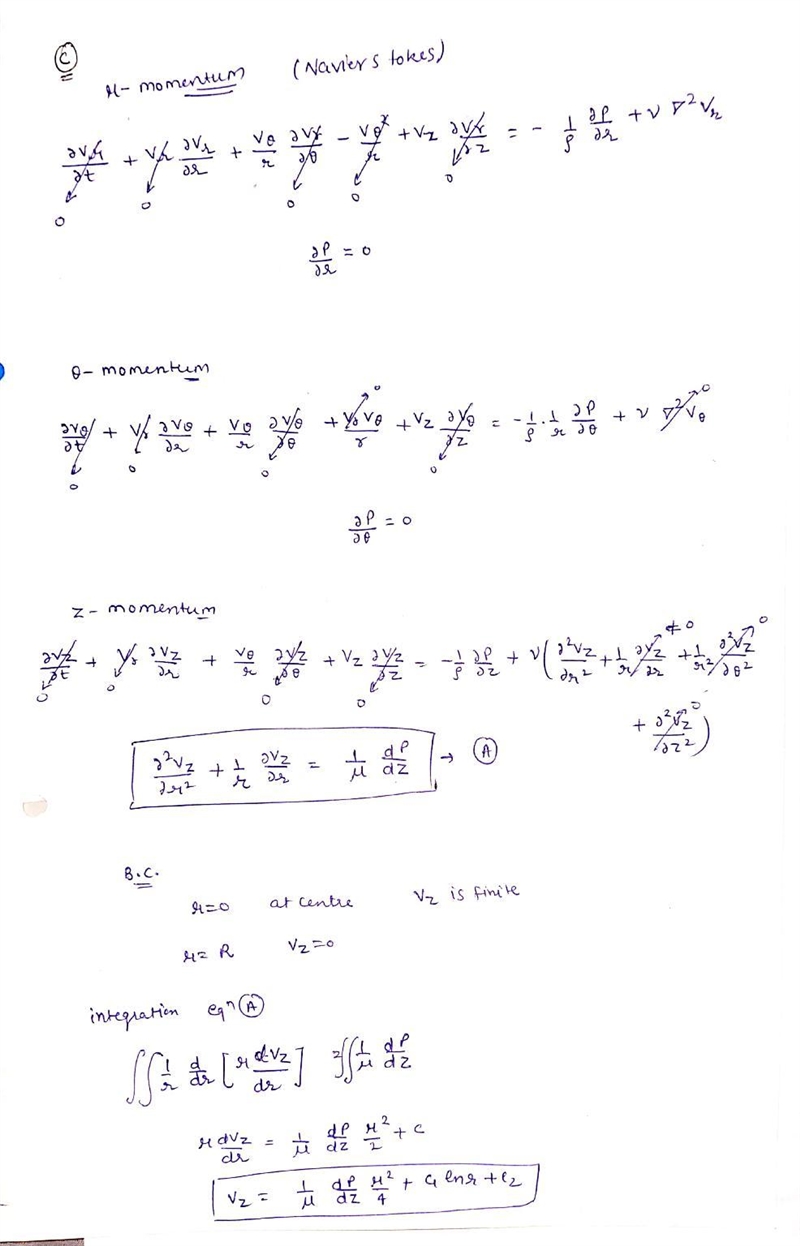 C
r-momentum (Navier Stokes)
∂Vr/∂t + Vr ∂Vr/∂r + Vθ/r ∂Vr/∂θ - Vθ²/r + Vz ∂Vr/∂z = - 1/ρ ∂P/∂r + ν ∇²Vr
0 0 0 0 0
∂P/∂r = 0
θ- momentum
∂Vθ/∂t + Vr ∂Vθ/∂r + Vθ/r ∂Vθ/∂θ + VrVθ/r + Vz ∂Vθ/∂z = -1/ρ · 1/r ∂P/∂θ + ν ∇²Vθ
0 0 0 0 0 0
∂P/∂θ = 0
z- momentum
∂Vz/∂t + Vr ∂Vz/∂r + Vθ/r ∂Vz/∂θ + Vz ∂Vz/∂z = -1/ρ ∂P/∂z + ν(∂²Vz/∂r² + 1/r ∂Vz/∂r + 1/r² ∂²Vz/∂θ²
0 0 0 0 ≠0 0
+ ∂²Vz/∂z²) 0
∂²Vz/∂r² + 1/r ∂Vz/∂r = 1/μ dP/dz → A
B.C.
r=0 at centre Vz is finite
r= R Vz=0
integration eqⁿ A
∬ 1/r d/dr [r dVz/dr] = ∬ 1/μ dP/dz
r dVz/dr = 1/μ dP/dz r²/2 + C
Vz = 1/μ dP/dz r²/4 + C₁ ln r + C₂